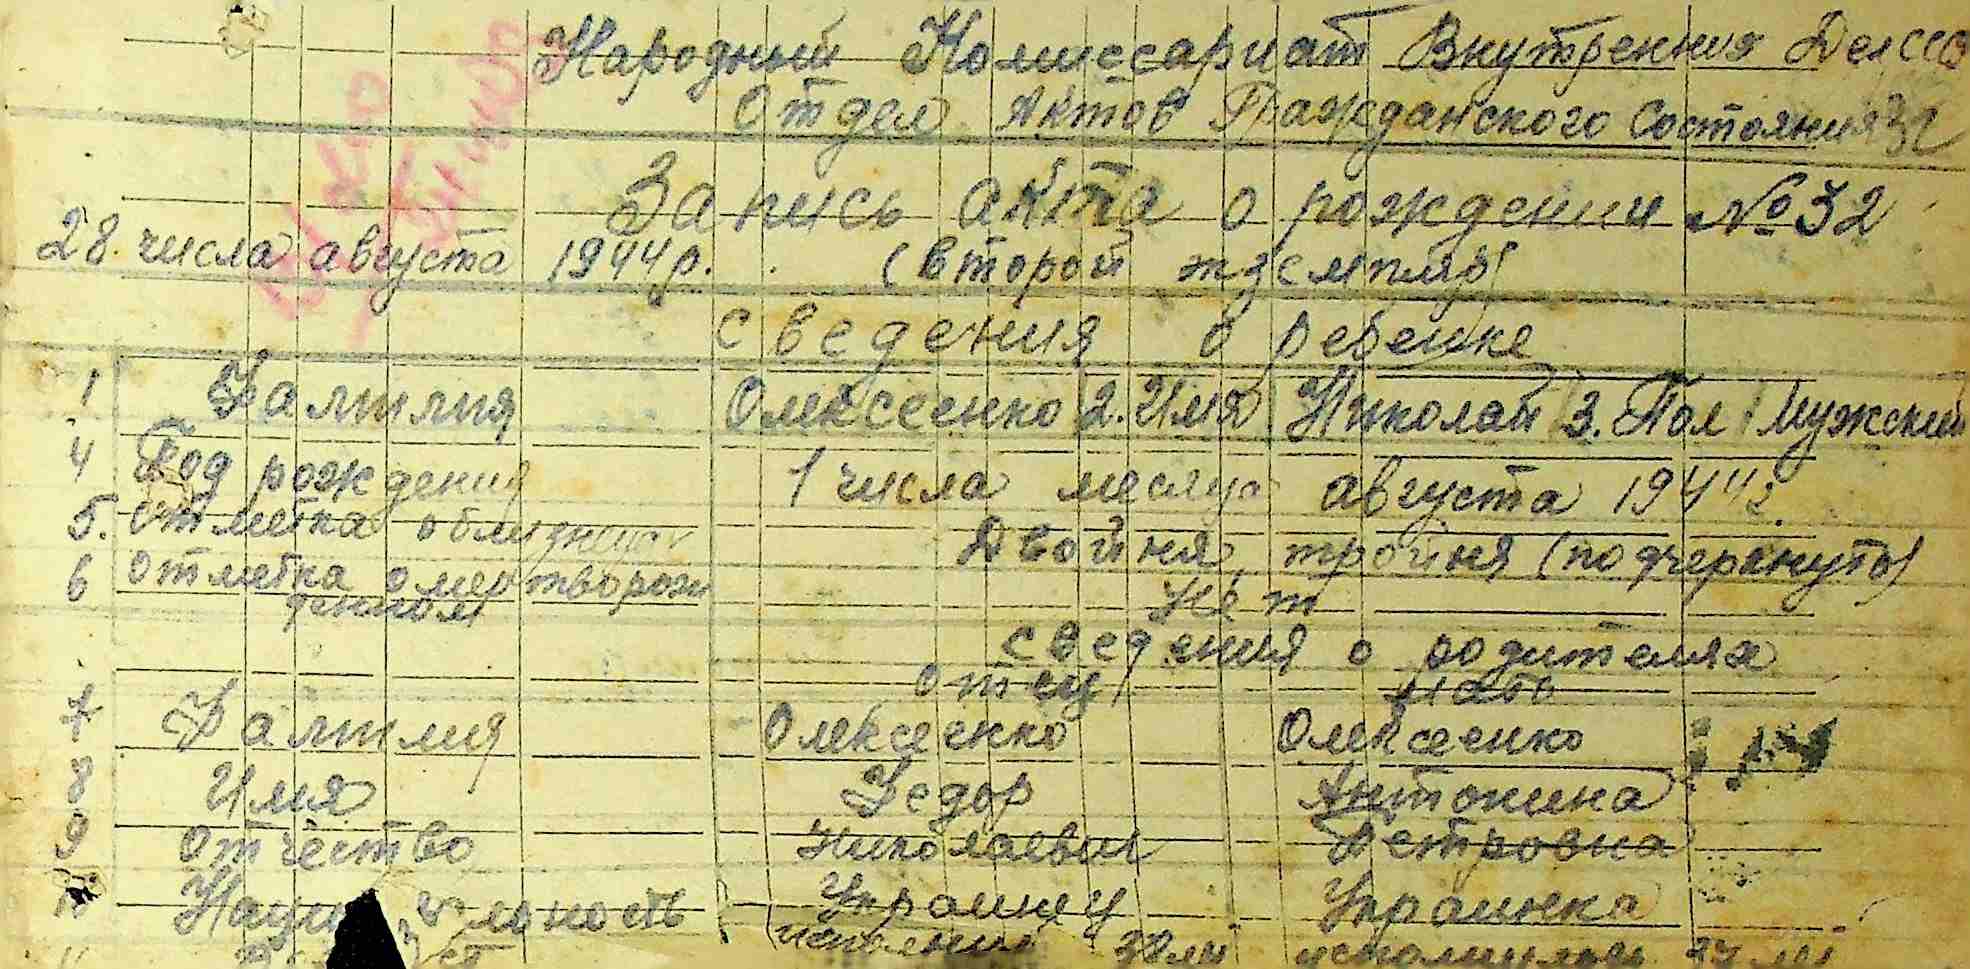 Народный Комиссариат Внутрених Дел ССС
Отдел Актов Гражданского Состояния
Запись акта о рождении №32
28 числа августа 1944 р. (второй экземпляр)
сведения о ребенке
1 Фамилия Олексеенко 2. Имя Николай 3. Пол Мужский
4 Год рождения 1 числа месяца августа 1944 г.
5. Отметка о близнецах Двойня, тройня (подчеркнуто)
6 Отметка о мертворож
денном Нет
сведения о родителях
отец мать
7 Фамилия Олексеенко Олексеенко
8 Имя Федор Антонина
9 Отчество Николаевич Петровна
Национальность Украинец Украинка
исполнил 32 исполнилось